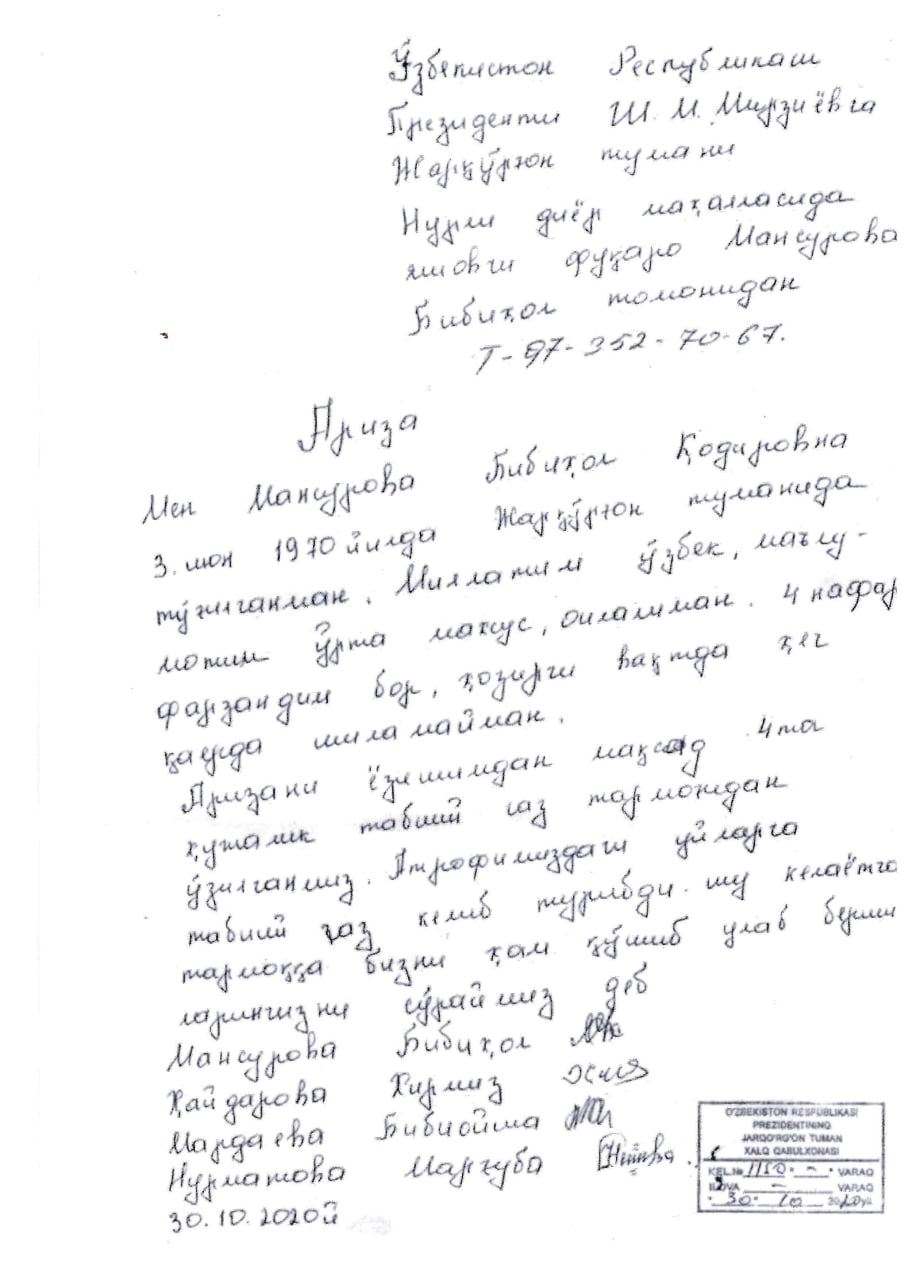 Ўзбекистон Республикаси
Президенти Ш.М. Мирзиёвга
Жарқўрғон тумани
Нурли диёр маҳалласида
яшовчи фуқаро Мансурова
Бибиҳол томонидан
Т-97-352-70-67.
Ариза
Мен Мансурова Бибиҳол Қодировна
3. июн 1970 йилда Жарқўрғон туманида
туғилганман. Миллатим ўзбек, маълу-
мотим ўрта махсус, оилалиман. 4 нафар
фарзандим бор, ҳозирги вақтда ҳеч
қаерда ишламайман.
Аризани ёзишимдан мақсад 4та
хужалик табиий газ тармоғидан
ўзилганмиз. Атрофимиздаги уйларга
табиий газ келиб турибди. шу келаётга
тармоққа бизни ҳам қўшиб улаб бериш
ларингизни сўраймиз деб
Мансурова Бибиҳол
Ҳайдарова Хирмиз
Мардаева Бибиойша
Нурматова Марғуба
30.10.2020й
O'ZBEKISTON RESPUBLIKASI
PREZIDENTINING
JARQO'RG'ON TUMAN
XALQ QABULXONASI
KEL.№ 1150 - VARAQ
ILOVA - VARAQ
30 10 2020 yil